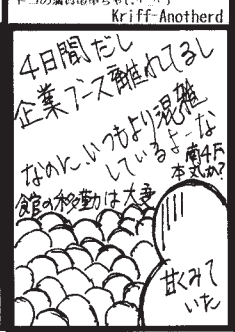 Kriff-Anotherd
4日間だし
企業ブース離れてるし
なのに、いつもより混雑
しているよーな
館の移動は大変
南4F
本丸か?
甘くみて
いた